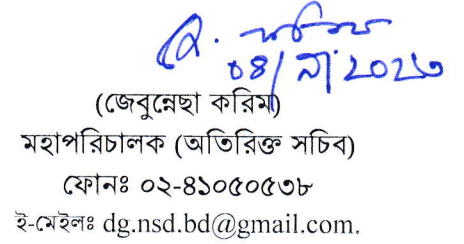 ০৪/ ২০২৩
(জেবুন্নেছা করিম)
মহাপরিচালক (অতিরিক্ত সচিব)
ফোনঃ ০২-৪১০৫০৫৩৮
ই-মেইলঃ dg.nsd.bd@gmail.com.